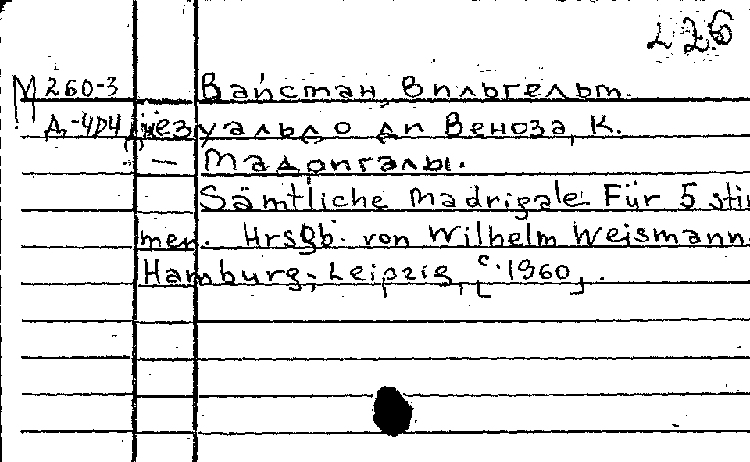 226
М 260-3 Вайсман, Вильгельм.
Д-4Д4 Джезуальдо ди Веноза, К.
— Мадригалы.
Sämtliche Madrigale Für 5 stim
men. Hrsgb. von Wilhelm Weismann.
Hamburg; Leipzig, [c. 1960].